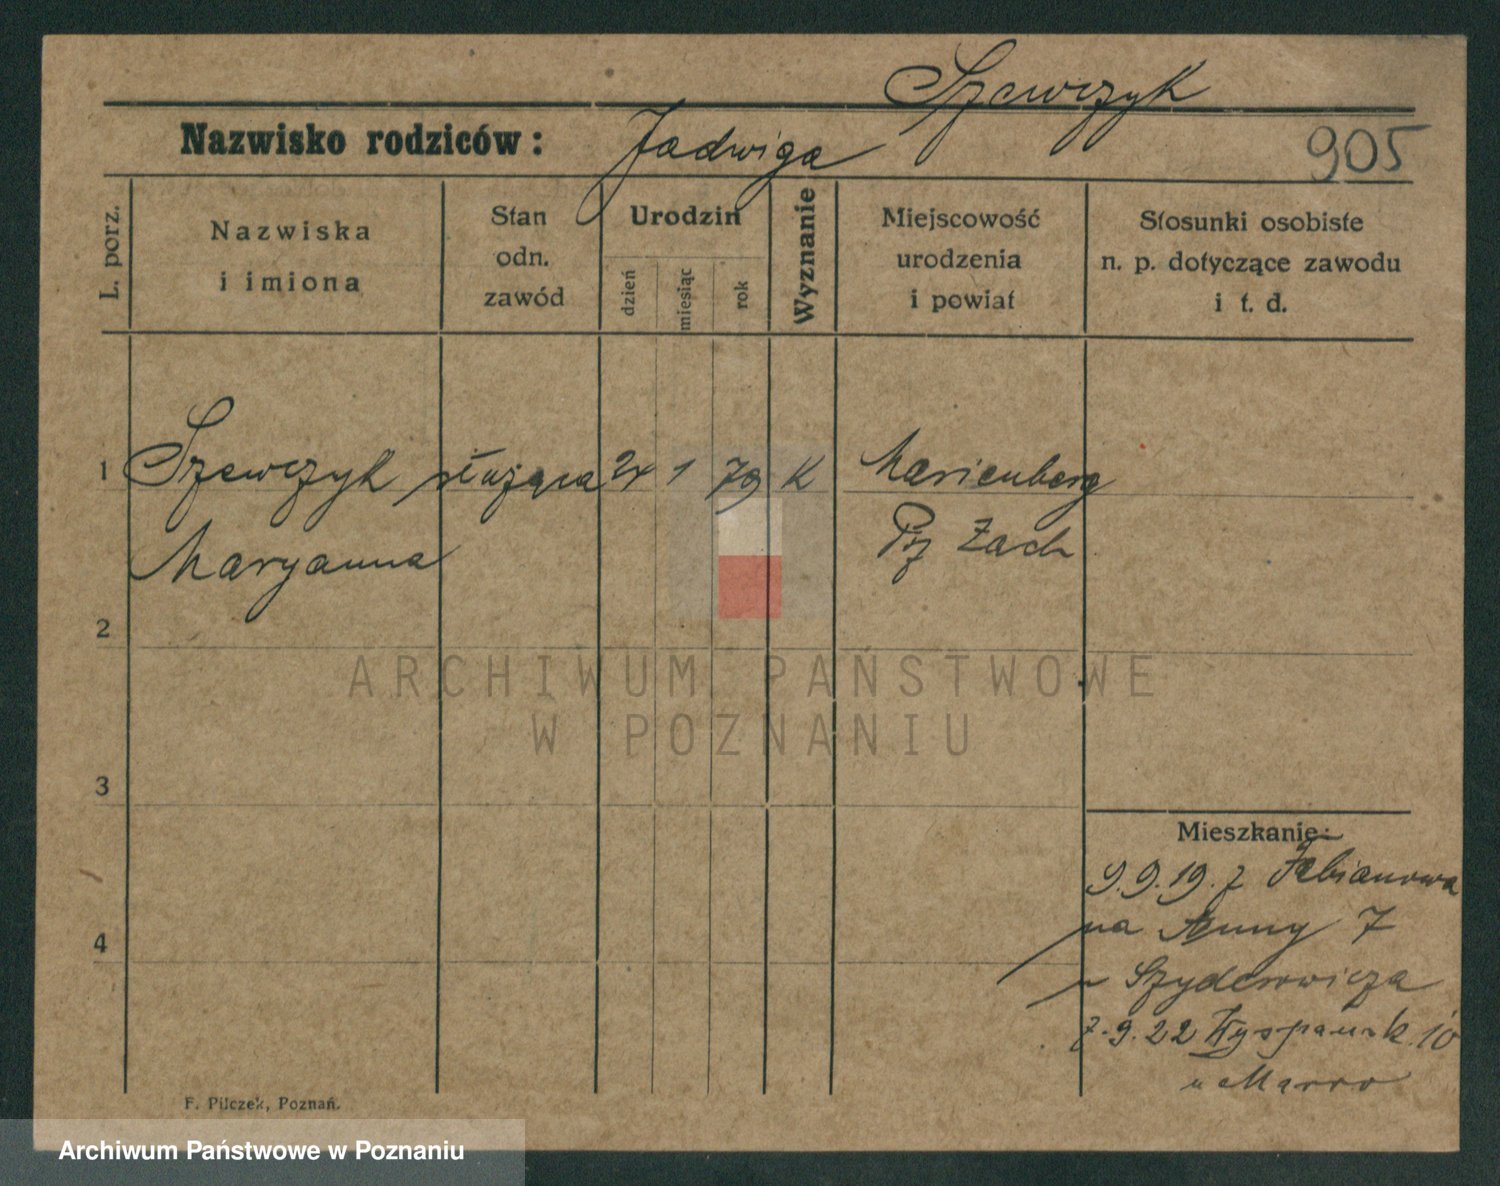 Szewczyk
Nazwisko rodziców: Jadwiga
905
L. porz.
Nazwiska
i imiona
Stan
odn.
zawód
Urodzin
dzień
miesiąc
rok
Wyznanie
Miejscowość
urodzenia
i powiat
Stosunki osobiste
n. p. dotyczące zawodu
i t. d.
1 Szewczyk służąca 24 1 79 K Marienberg
Maryanna Pz Zach
2
3
4
Mieszkanie:
9.9.19. z Fabianowa
na Anny 7
u Szyderowicza
7.9.22 Wyspiańsk. 10
u Marro
F. Pilczek, Poznań.
ARCHIWUM PAŃSTWOWE
W POZNANIU
Archiwum Państwowe w Poznaniu